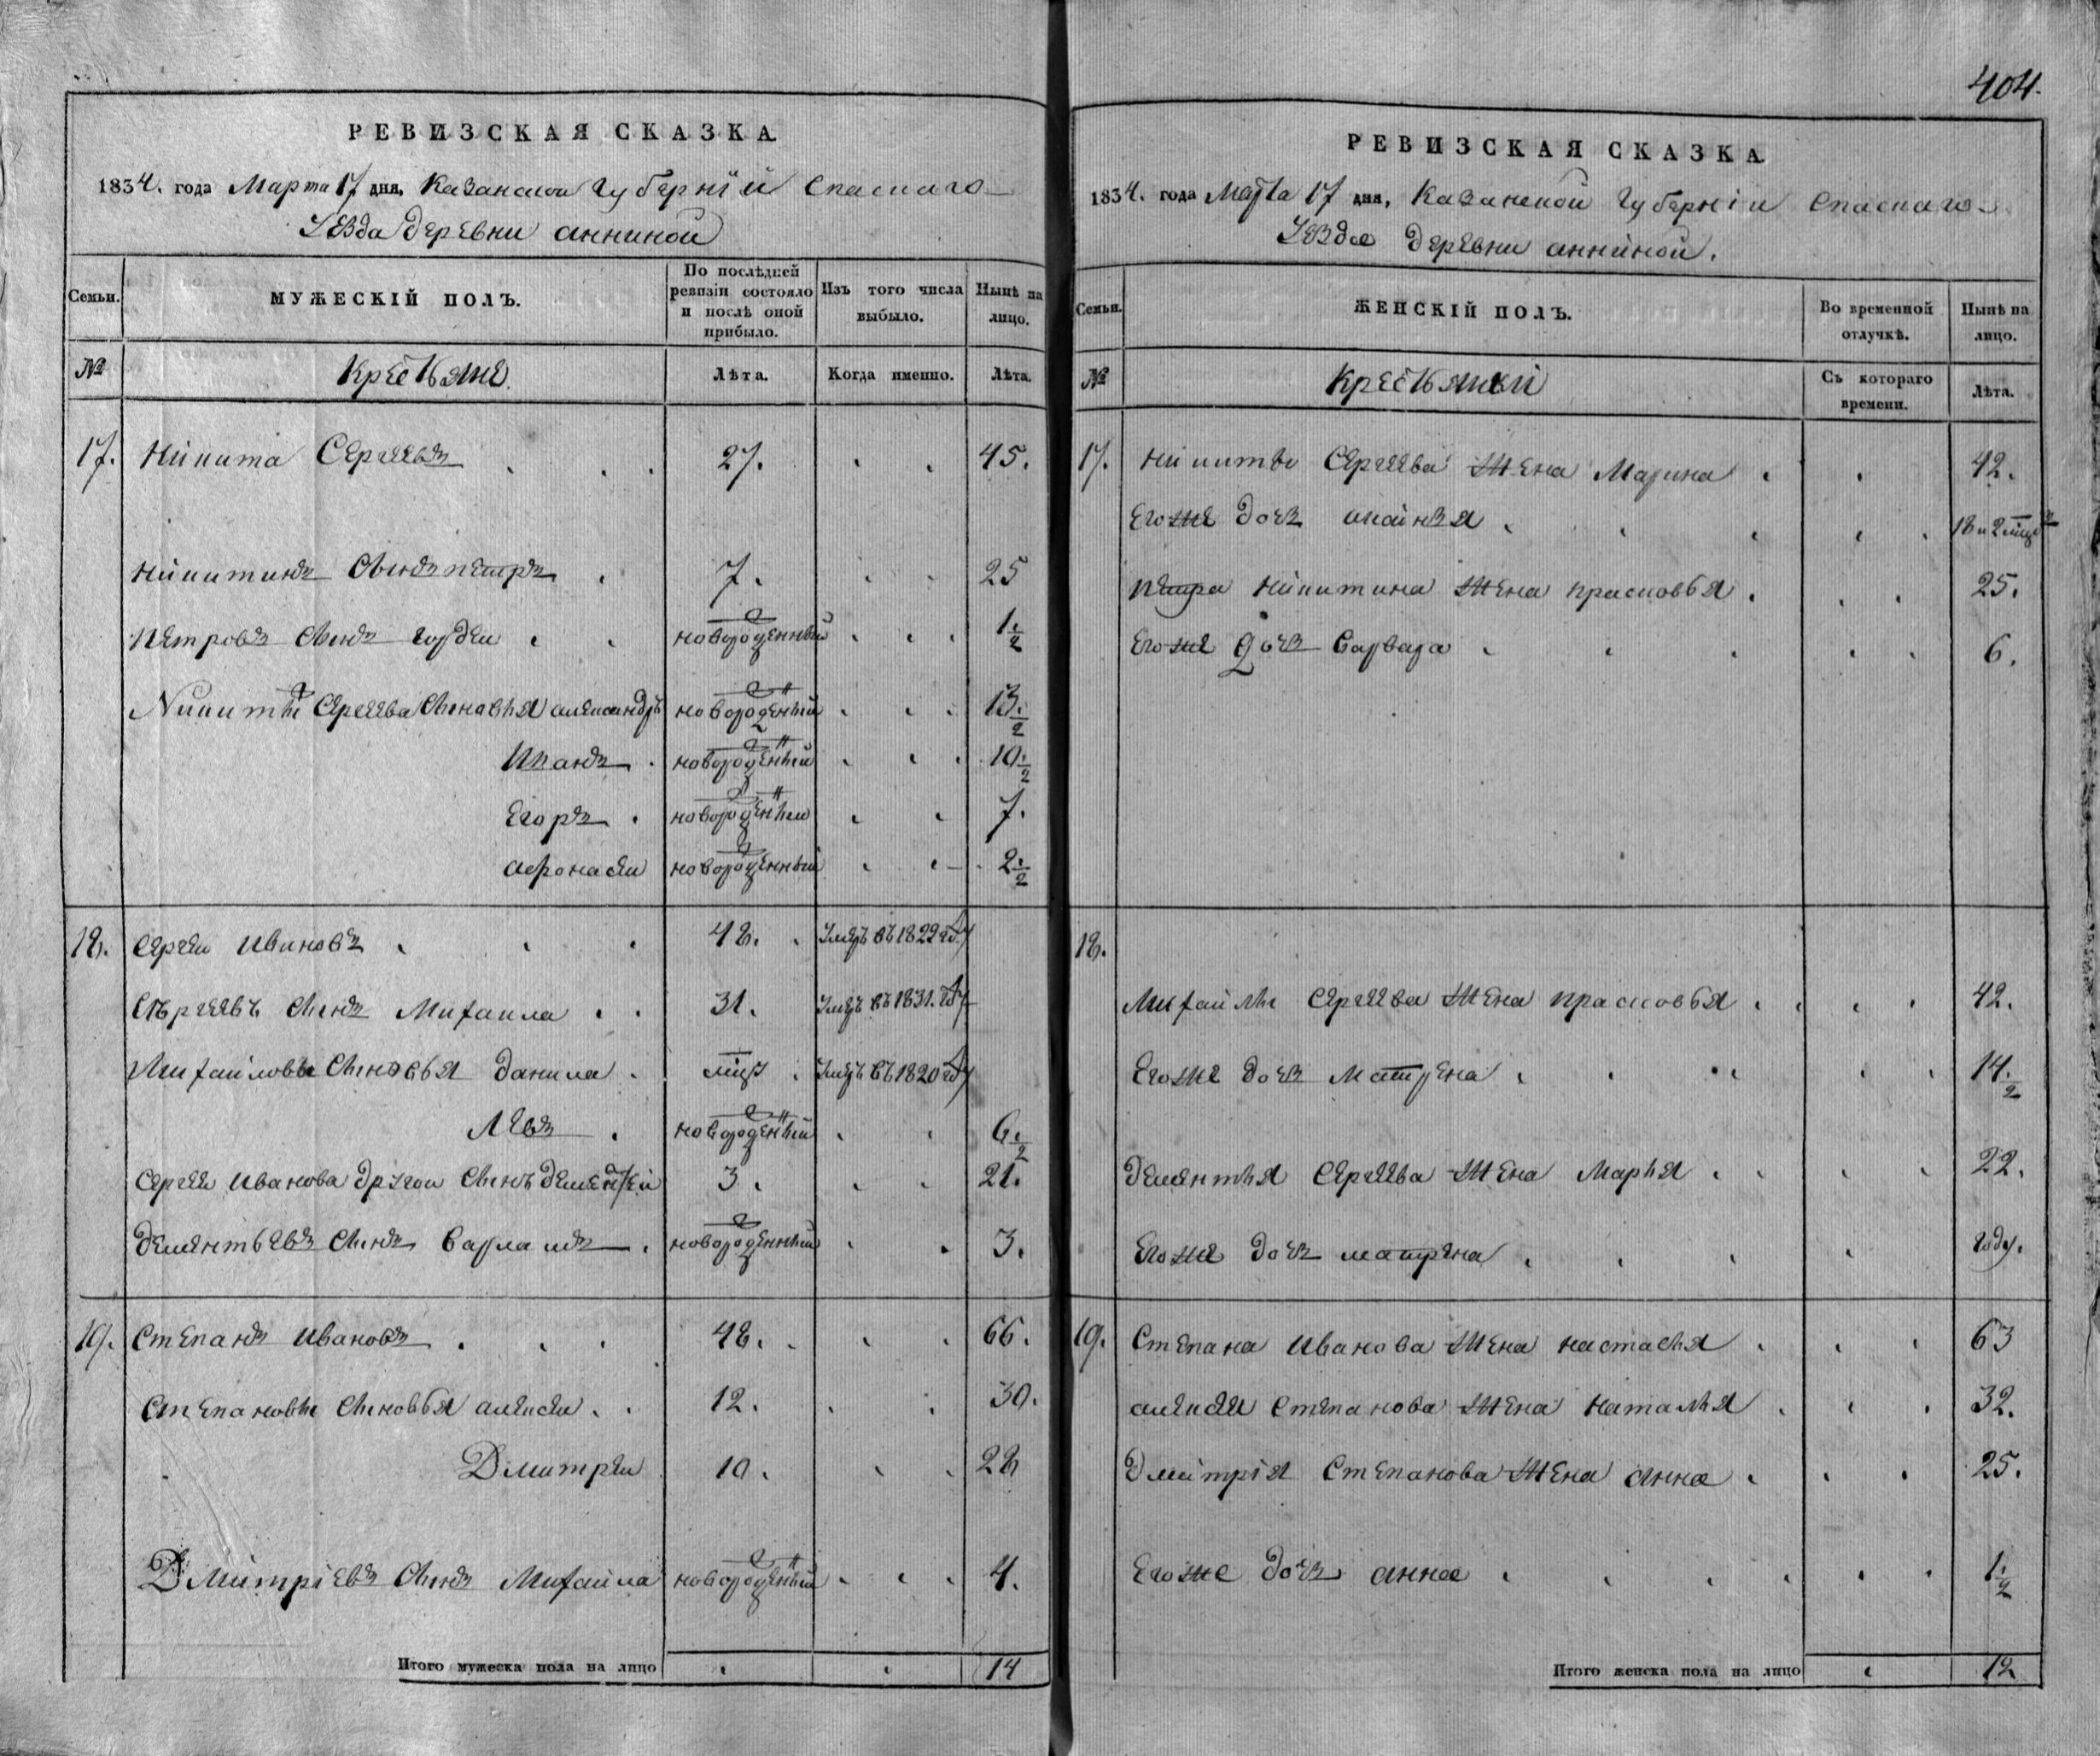 РЕВИЗСКАЯ СКАЗКА
1834. года Марта 17 дня, Казанской Губерніи Спаскаго
Уѣзда деревни анниной
Семьи.
МУЖЕСКІЙ ПОЛЪ.
По послѣдней ревизіи состояло и послѣ оной прибыло.
Изъ того числа выбыло.
Нынѣ на лицо.
№
Крестьяне
Лѣта.
Когда именно.
Лѣта.
17. Никита Сергеевъ 27. 45.
Никитинъ Сынъ петръ 7. 25
петровъ Сынъ гордеи новорожденный 1 1/2
Никиты Сергеева Сыновья александръ новорожденный 13 1/2
Иванъ новорожденный 10 1/2
Егоръ новорожденный 7.
афонасеи новорожденный 2 1/2
18. Сергеи ивановъ 48. Умеръ въ 1822 году
Сергеевъ Сынъ Михаила 31. Умеръ въ 1831. году
Михаиловы Сыновья данила мцъ Умеръ въ 1820 году
Левъ новорожденный 6 1/2
Сергея иванова другой Сынъ дементей 3. 21.
дементьевъ Сынъ Варламъ новорожденный 3.
19. Степанъ ивановъ 48. 66.
Степановы Сыновья алексеи 12. 30.
Дмитреи 10. 28
Дмитріевъ Сынъ Михаила новорожденный 4.
Итого мужеска пола на лицо 14
404.
РЕВИЗСКАЯ СКАЗКА
1834. года Марта 17 дня, Казанской Губерніи Спаскаго
Уѣзда деревни анниной.
Семьи.
ЖЕНСКІЙ ПОЛЪ.
Во временной отлучкѣ.
Нынѣ на лицо.
№
Крестьянки
Съ котораго времени.
Лѣта.
17. Никиты Сергеева Жена Марина 42.
Егоже дочь 18 и 2
петра Никитина Жена прасковья 25.
Егоже дочь Варвара 6.
18.
Михаилы Сергеева Жена прасковья 42.
Егоже дочь Матрена 14 1/2
дементья Сергеева Жена Марья 22.
Егоже дочь матрена году.
19. Степана иванова Жена настасья 63
алексея Степанова Жена Наталья 32.
Дмитрія Степанова Жена анна 25.
Егоже дочь анна 1 1/2
Итого женска пола на лицо 12